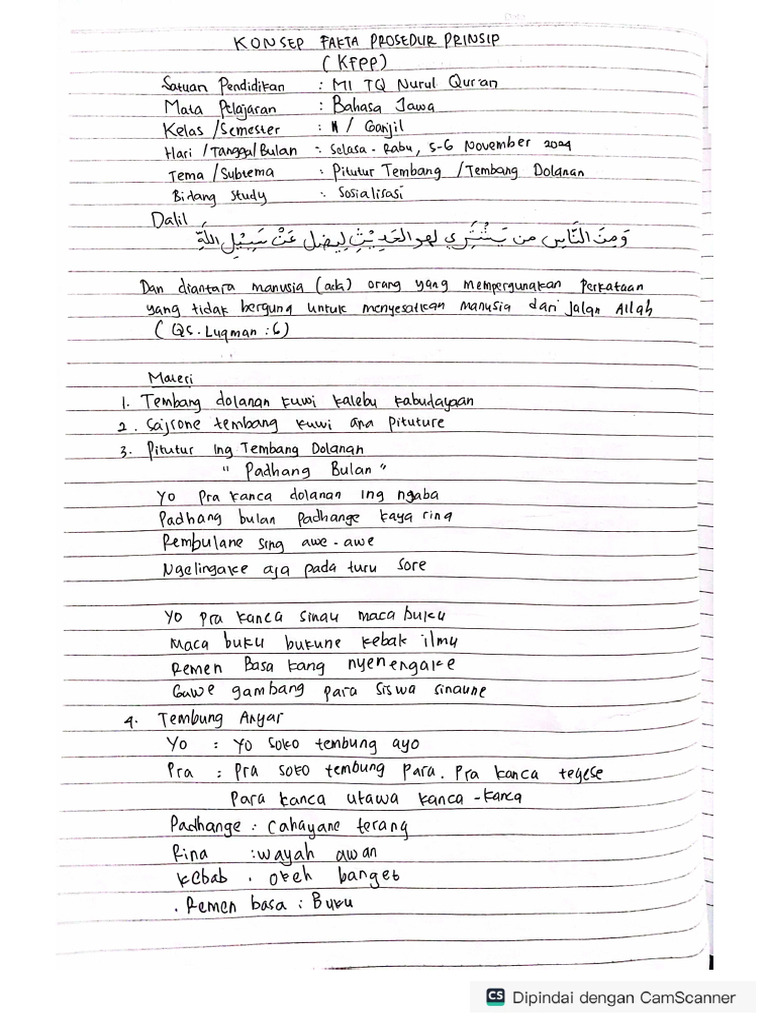 KONSEP FAKTA PROSEDUR PRINSIP
(KFPP)
Satuan Pendidikan : MI TQ Nurul Qur'an
Mata Pelajaran : Bahasa Jawa
Kelas /Semester : / Ganjil
Hari /Tanggal/Bulan : Selasa - Rabu, 5-6 November 2024
Tema /Subtema : Pitutur Tembang /Tembang Dolanan
Bidang Study : Sosialisasi
Dalil
وَمِنَ النَّاسِ مَن يَشْتَرِي لهو الحَدِيْثِ لِيضل عَنْ سَبِيْلِ اللَّهِ
Dan diantara manusia (ada) orang yang mempergunakan Perkataan
yang tidak bergung untuk menyesatkan manusia dari jalan Allah
(QS. Luqman : 6)
Materi
1. Tembang dolanan kuwi kalebu kabudayaan
2. Sajrone tembang kuwi ana pituture
3. Pitutur Ing Tembang Dolanan
" Padhang Bulan "
Yo Pra kanca dolanan ing ngaba
Padhang bulan padhange kaya rina
Rembulane sing awe - awe
Ngelingake aja pada turu sore
Yo pra kanca sinau maca buku
Maca buku bukune kebak ilmu
Remen Basa kang nyenengake
Gawe gambang para siswa sinaune
4. Tembung Anyar
Yo : Yo soko tembung ayo
Pra : Pra soko tembung Para. Pra kanca tegese
Para kanca utawa kanca - kanca
Padhange : Cahayane terang
Rina : wayah awan
kebab . okeh banget
. Remen basa : Buku
CS Dipindai dengan CamScanner